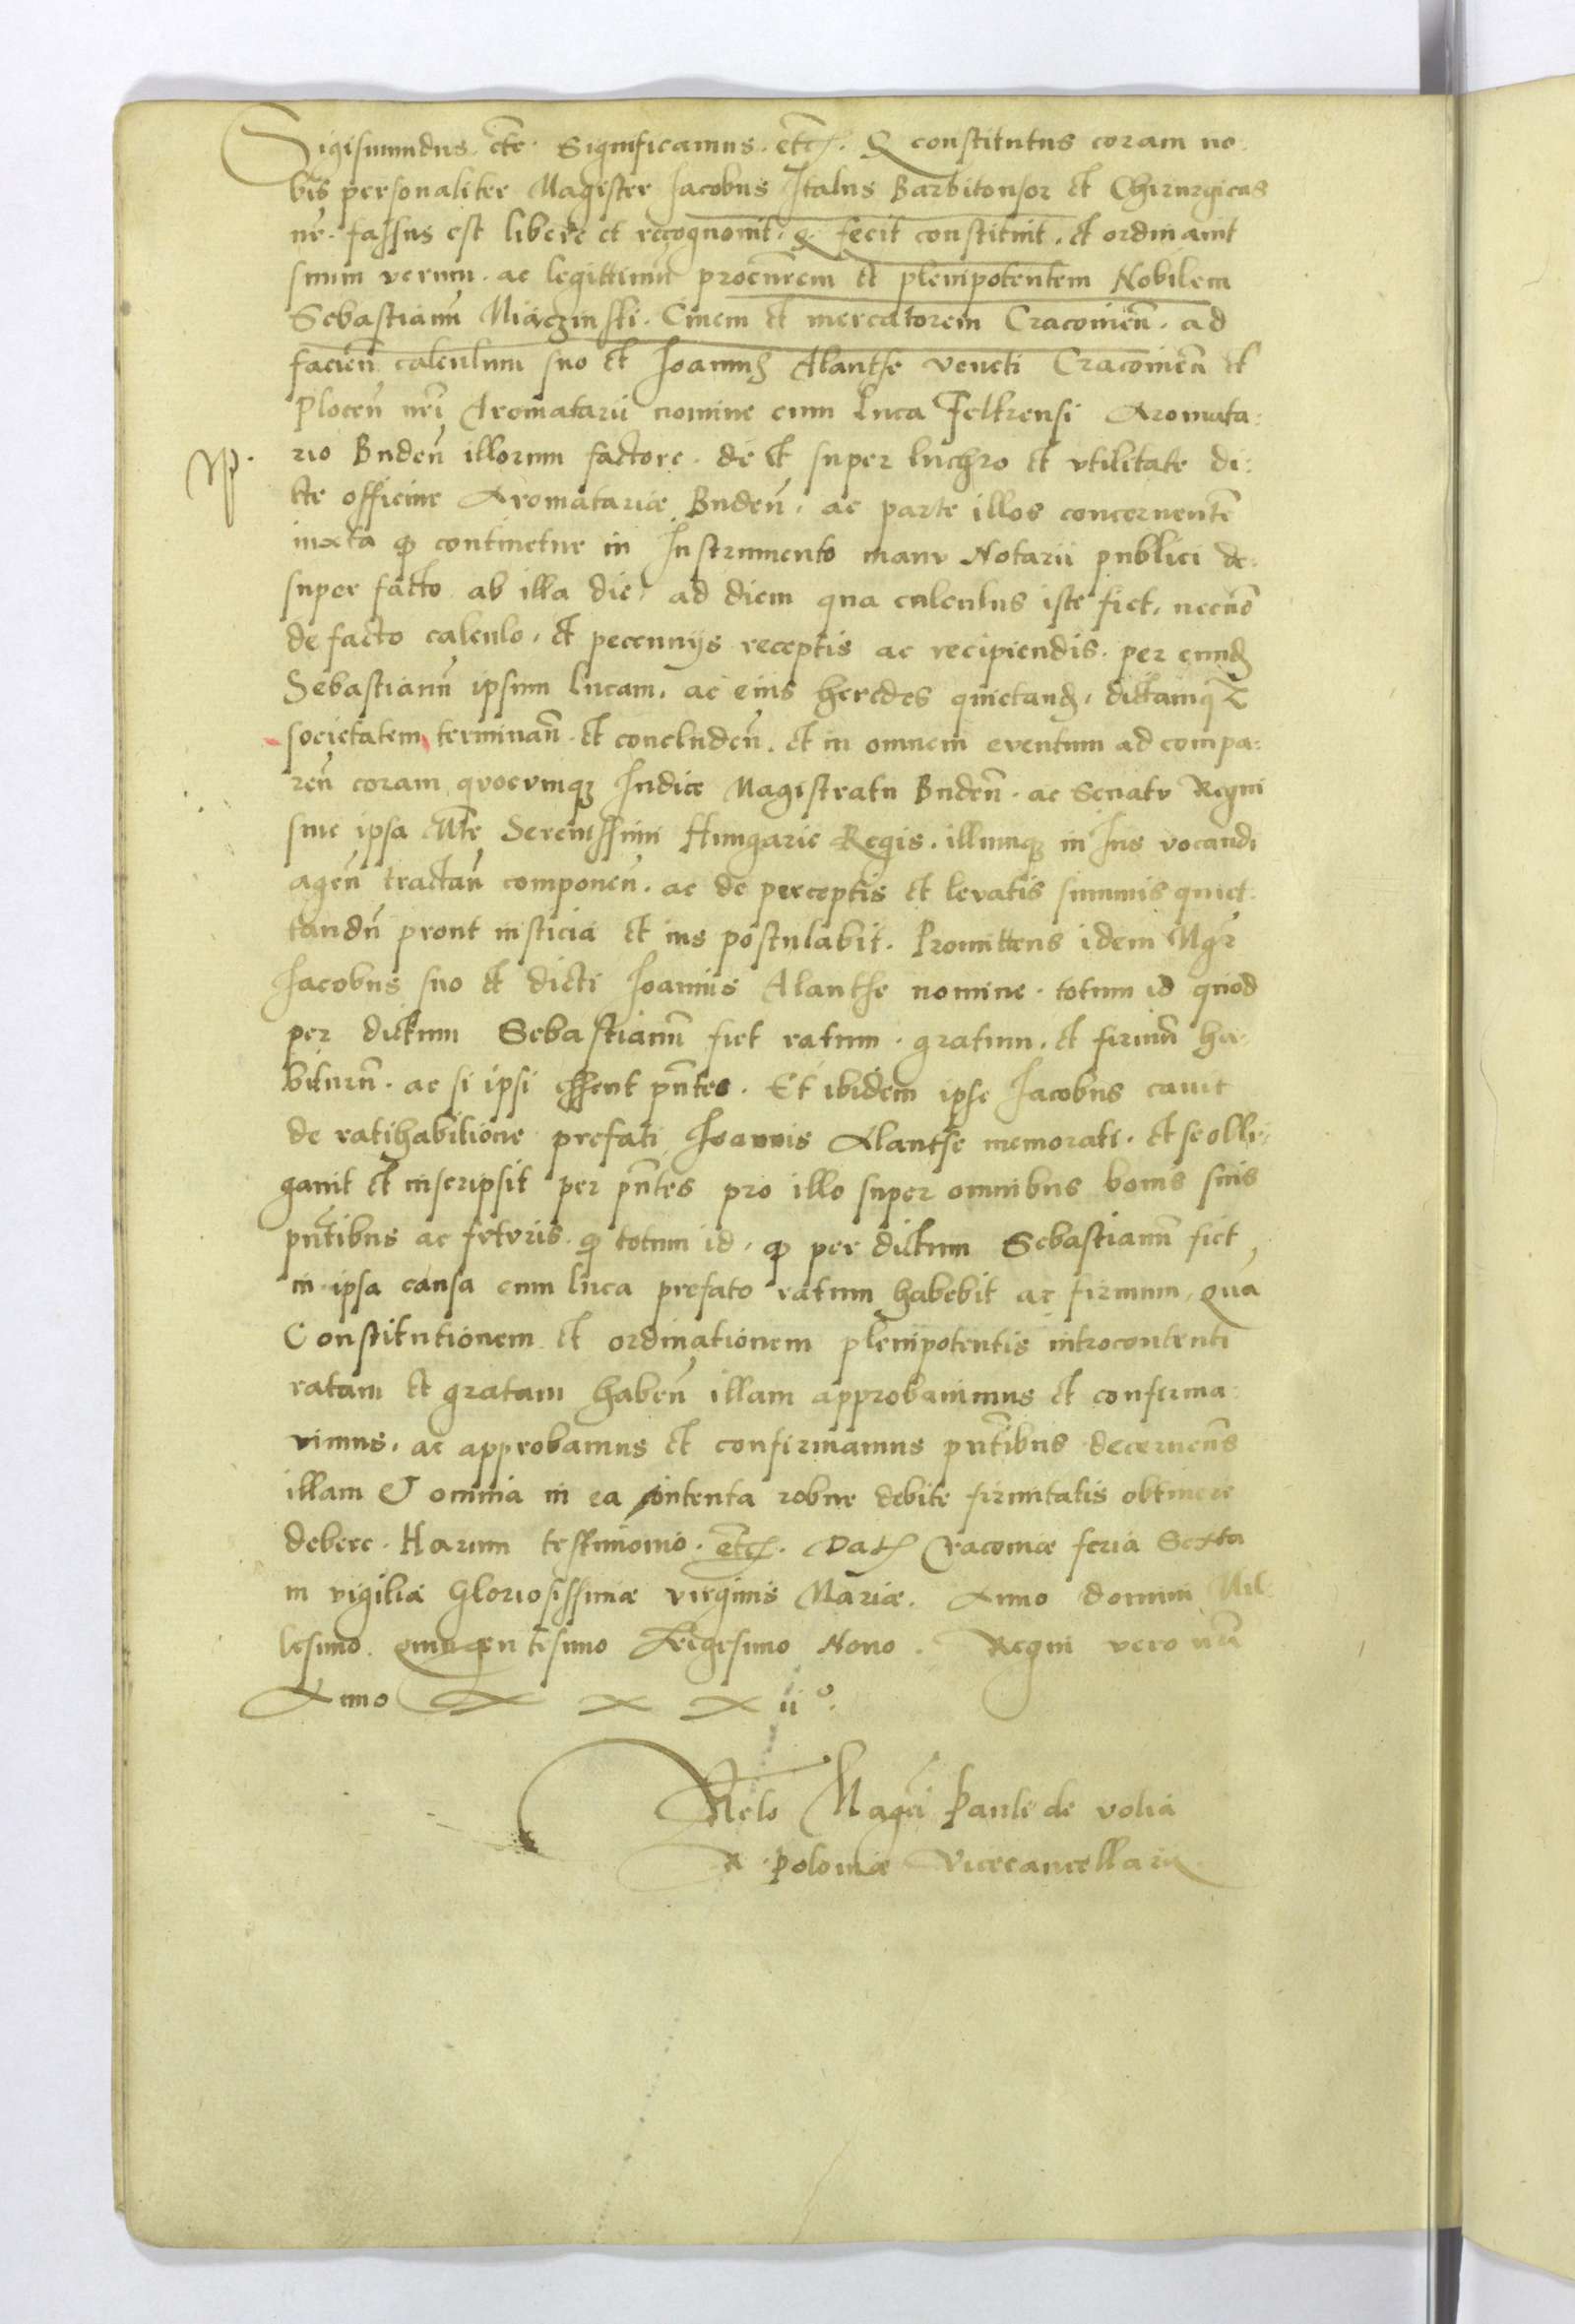 Sigismundus etc. Significamus. etc. Q constitutus coram no.
bis personaliter Magister Iacobus Italus Barbitonsor et Chirurgicus
nr̄. fassus est libere et recognovit, q. fecit constituit. et ordinavit
suum verum. ac legittimū procūrem et plenipotentem Nobilem
Sebastianū Miączinski. Civem et mercatorem Cracovieñ. ad
facieñ calculum suo et Ioannis Alantse veneti Cracovieñ et
Ploceñ nr̄i Aromatarii nomine cum Luca Feltrensi Aromata:
rio Budeñ illorum factore. de et super luchro et utilitate di:
cte officine Aromatariæ Budeñ, ac parte illos concernentē
iuxta qđ continetur in Instrumento manv Notarii publici de:
super facto ab illa die, ad diem qua calculus iste fiet, necnō
de facto calculo, et pecunnijs receptis ac recipiendis. per eundē
Sebastianū ipsum Lucam, ac eius heredes quietand, dictamq3
societatem terminañ. et concludeñ. et in omnem eventum ad compa:
reñ coram qvocvmq3 Iudice Magistratu Budeñ. ac Senatv Regni
sive ipsa Mte Serenissimi Hungarie Regis. illumq3 in Ius vocandi
ageñ tractañ componeñ. ac de perceptis et levatis summis quiet.
tandū prout iusticia et ius postulabit. Promittens idem Mgr̄
Iacobus suo et dicti Ioannis Alantse nomine. totum id quod
per dictum Sebastianū fiet ratum. gratum. et firmū ha:
biturū. ac si ipsi essent pn̄tes. Et ibidem ipse Iacobus cavit
de ratihabitione prefati Ioannis Alantse memorati. et se obli:
gavit et inscripsit per pn̄tes pro illo super omnibus bonis suis
pn̄tibus ac fvtvris. qđ totum id, qđ per dictum Sebastianū fiet
in ipsa causa cum Luca prefato ratum habebit ac firmum, Quā
Constitutionem et ordinationem plenipotentis introcontenti
ratam et gratam habeñ illam approbavimus et confirma:
vimus, ac approbamus et confirmamus pn̄tibus decernen̄s
illam & omnia in ea contenta robur debite firmitatis obtinere
debere. Harum testimonio. etc. Dat Cracoviæ feria Sexta
in vigilia Gloriosissimæ virginis Mariæ. Anno domini Mil:
lesimo. quingentesimo Trigesimo Nono. Regni vero nr̄i
Anno X X X iiº.
Relo Magci Pauli de volia
R. Poloniæ Vicecancellarii